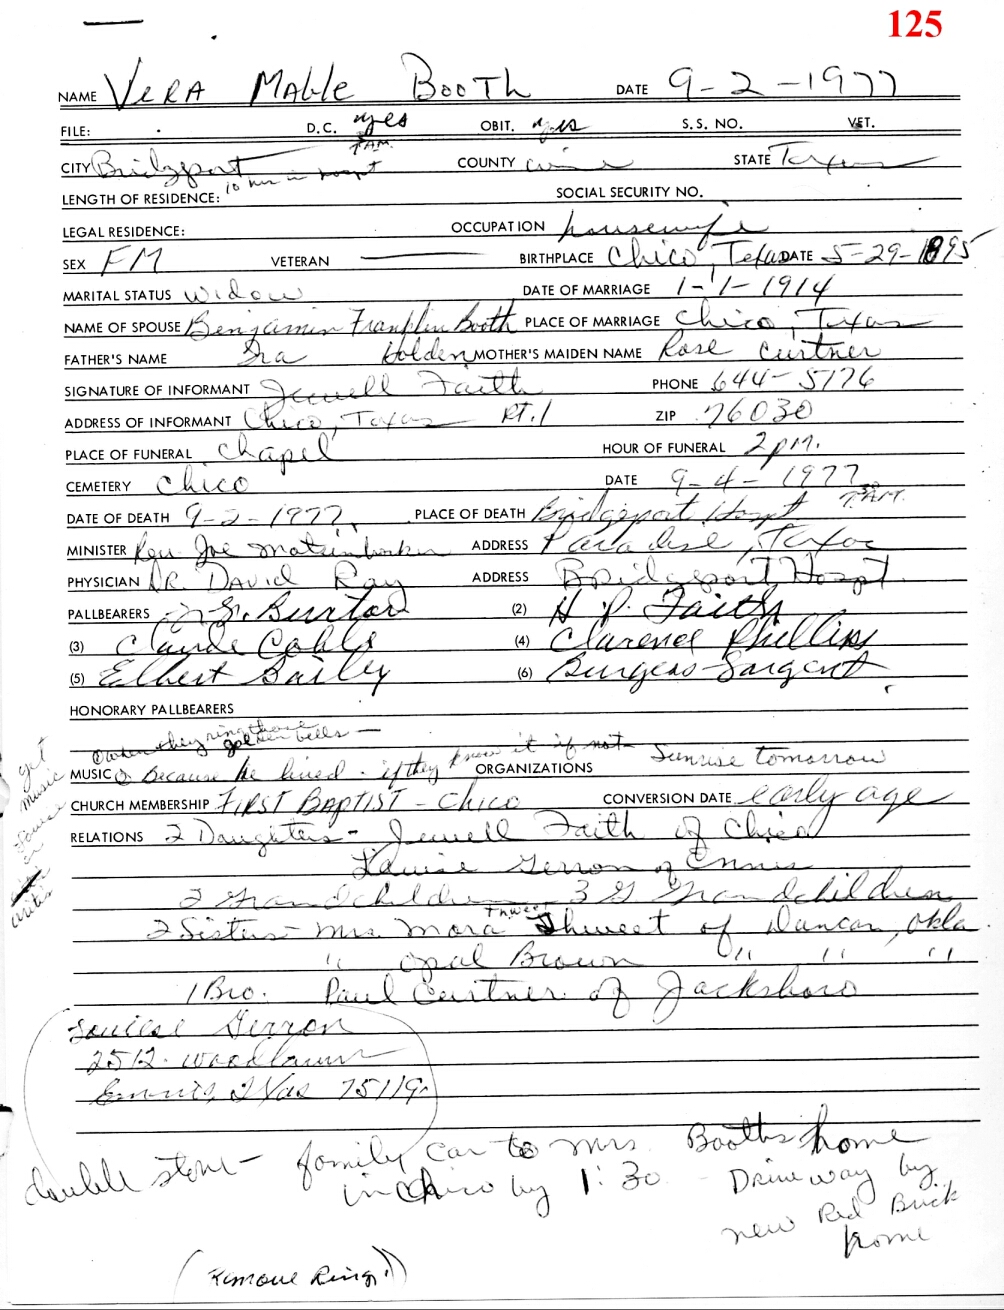 125
NAME VERA MABle BOOTH DATE 9-2-1977
FILE: D.C. yes OBIT. yes S.S. NO. VET.
7 AM.
CITY Bridgeport COUNTY wise STATE Texas
LENGTH OF RESIDENCE: 10 hrs in hospt SOCIAL SECURITY NO.
LEGAL RESIDENCE: OCCUPATION housewife
SEX FM VETERAN BIRTHPLACE Chico, Texas DATE 5-29-1895
MARITAL STATUS Widow DATE OF MARRIAGE 1-1-1914
NAME OF SPOUSE Benjamin Franklin Booth PLACE OF MARRIAGE Chico, Texas
FATHER'S NAME Ira Holden MOTHER'S MAIDEN NAME Rose Curtner
SIGNATURE OF INFORMANT Jewell Faith PHONE 644-5176
ADDRESS OF INFORMANT Chico, Texas Rt. 1 ZIP 76030
PLACE OF FUNERAL Chapel HOUR OF FUNERAL 2 pm.
CEMETERY Chico DATE 9-4-1977
DATE OF DEATH 9-2-1977 PLACE OF DEATH Bridgeport Hospt 7 A.M.
MINISTER Rev. Joe ADDRESS Paradise, Texas
PHYSICIAN DR. David Ray ADDRESS Bridgeport Hospt.
PALLBEARERS Burton (2) H. P. Faith
(3) Claude Cable (4) Clarence Phillips
(5) Elbert Bailey (6) Burgess Sargent
HONORARY PALLBEARERS
① when they ring those golden bells —
MUSIC ② Because he lived - if they know it if not Sunrise tomorrow ORGANIZATIONS
get music
CHURCH MEMBERSHIP FIRST BAPTIST - Chico CONVERSION DATE early age
RELATIONS 2 Daughters - Jewell Faith of Chico
Louise Gerron of Ennis
2 Grandchildren 3 G. Grandchildren
2 Sisters - Mrs. Mora Thweet of Duncan, Okla
" Opal Brown " " "
1 Bro. Paul Curtner of Jacksboro
Louise Gerron
2512 Woodlawn
Ennis, Texas 75119
double stone - family car to Mrs. Booths home
in Chico by 1:30 - Driveway by
new Red Brick
home
(Remove Ring!)